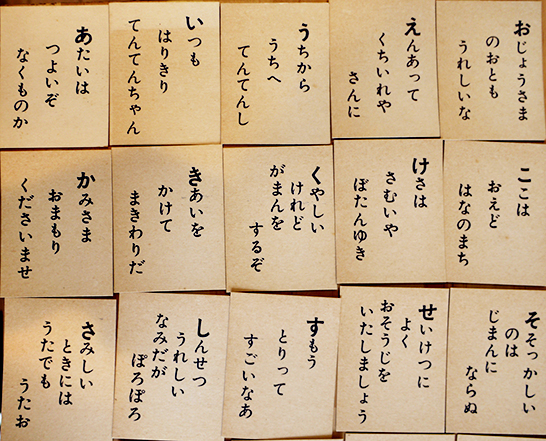 あたいは
つよいぞ
なくものか
いつも
はりきり
てんてんちゃん
うちから
うちへ
てんてんし
えんあって
くちいれや
さんに
おじょうさま
のおとも
うれしいな
かみさま
おまもり
くださいませ
きあいを
かけて
まきわりだ
くやしい
けれど
がまんを
するぞ
けさは
さむいや
ぼたんゆき
ここは
おえど
はなのまち
さみしい
ときには
うたでも
うたお
しんせつ
うれしい
なみだが
ぽろぽろ
すもう
とりって
すごいなあ
せいけつに
よく
おそうじを
いたしましょう
そそっかしい
のは
じまんに
ならぬ